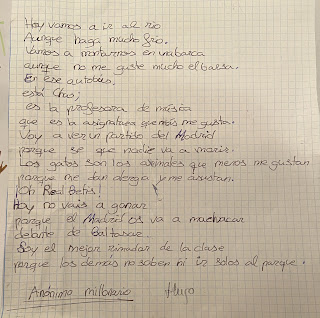 Hoy vamos a ir al río
Aunque haga mucho frío.
Vamos a montarnos en una barca
aunque no me guste mucho el barsa.
En ese autobús.
está Chus;
es la profesora de música
que es la asignatura que más me gusta.
Voy a ver un partido del Madrid
porque se que nadie va a morir.
Los gatos son los animales que menos me gustan
porque me dan alergia y me asustan.
¡Oh Real Betis!
Hoy no vais a ganar
porque el Madrid os va a machacar
delante de Baltasar.
Soy el mejor rimador de la clase
porque los demás no saben ni ir solos al parque.
Anónimo millonario Hugo